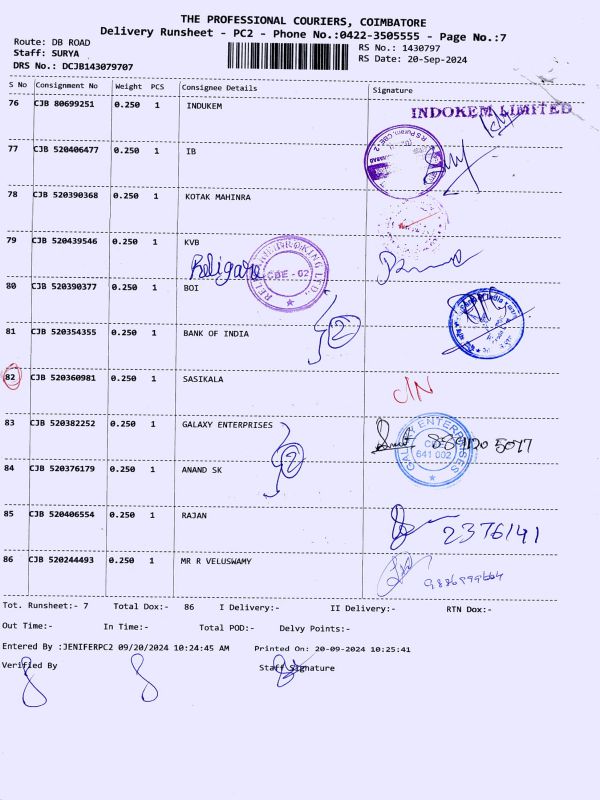 THE PROFESSIONAL COURIERS, COIMBATORE
Delivery Runsheet - PC2 - Phone No.:0422-3505555 - Page No.:7
Route: DB ROAD
Staff: SURYA
DRS No.: DCJB143079707
RS No.: 1430797
RS Date: 20-Sep-2024
S No Consignment No Weight PCS Consignee Details Signature
76 CJB 80699251 0.250 1 INDUKEM
INDOKEM LIMITED
77 CJB 520406477 0.250 1 IB
78 CJB 520390368 0.250 1 KOTAK MAHINRA
79 CJB 520439546 0.250 1 KVB
Religare
CBE - 02
80 CJB 520390377 0.250 1 BOI
81 CJB 520354355 0.250 1 BANK OF INDIA
2
82 CJB 520360981 0.250 1 SASIKALA
C/N
83 CJB 520382252 0.250 1 GALAXY ENTERPRISES
GALAXY ENTERPRISES
641 002
84 CJB 520376179 0.250 1 ANAND SK
2
85 CJB 520406554 0.250 1 RAJAN
2376141
86 CJB 520244493 0.250 1 MR R VELUSWAMY
Tot. Runsheet:- 7 Total Dox:- 86 I Delivery:- II Delivery:- RTN Dox:-
Out Time:- In Time:- Total POD:- Delvy Points:-
Entered By :JENIFERPC2 09/20/2024 10:24:45 AM Printed On: 20-09-2024 10:25:41
Verified By Staff Signature